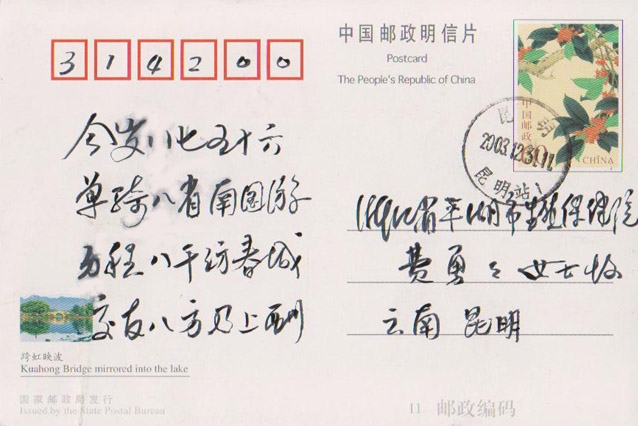 中国邮政明信片
Postcard
The People's Republic of China
314200
中国邮政
CHINA
昆明
2003.12.31.11
昆明站
今岁八七五十六
单骑八省南国游
历程八千访春城
交友八方乃上
省平湖市生殖保健院
费勇 女士收
云南 昆明
跨虹映波
Kuahong Bridge mirrored into the lake
国家邮政局发行
Issued by the State Postal Bureau
11 邮政编码